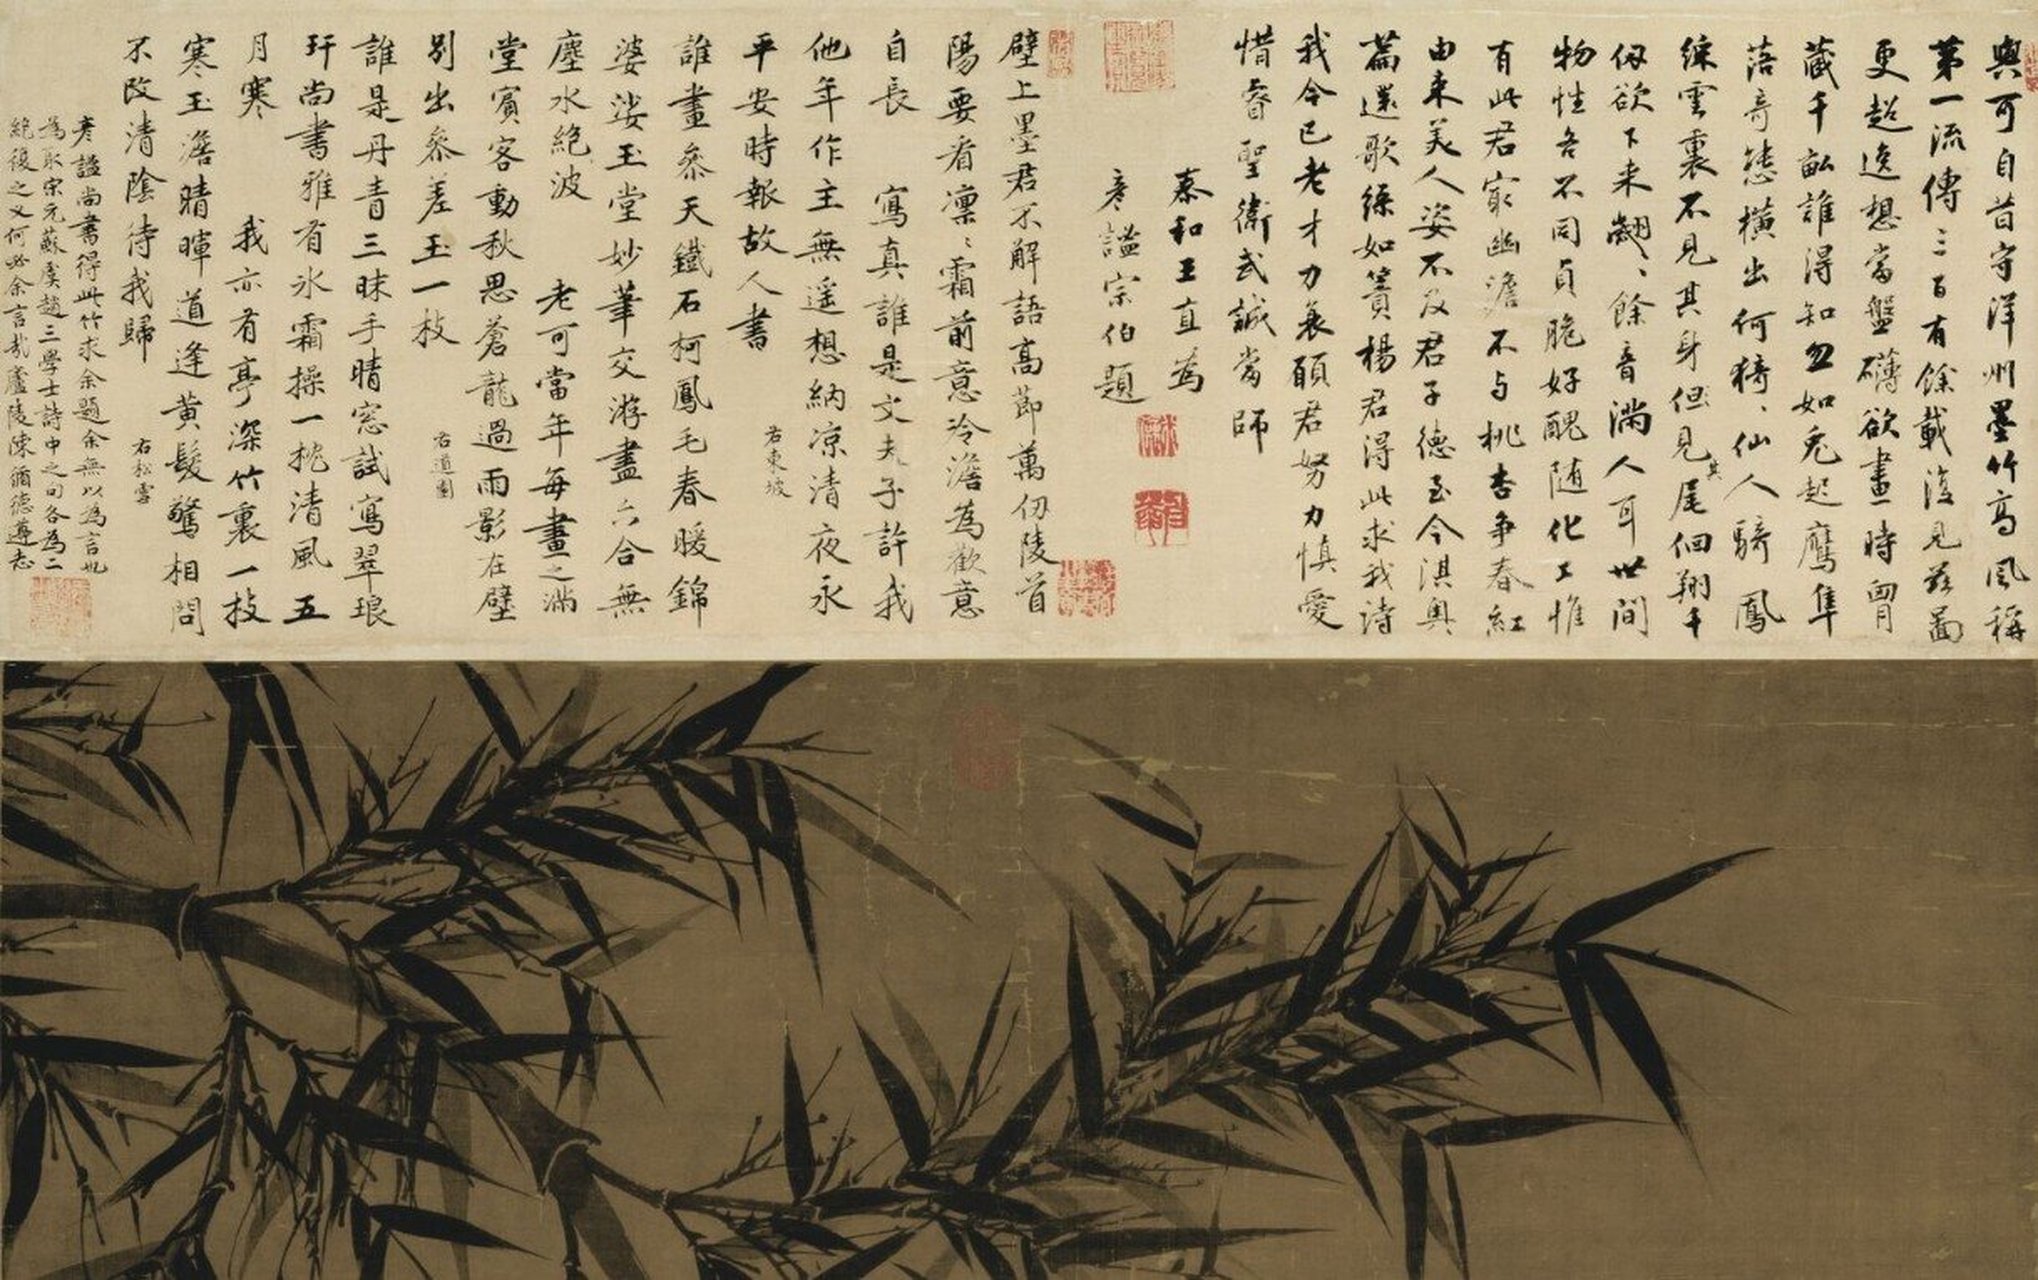 與可自昔守洋州墨竹高風稱
第一流傳三百有餘載復見茲圖
更超逸想當盤礴欲畫時胷
藏千畝誰得知忽如兎起鷹隼
落奇態橫出何猗、仙人騎鳳
綠雲裏不見其身但見其尾佪翔千
仭欲下来翽、餘音滿人耳世間
物性各不同貞脆好醜随化工惟
有此君㝡幽澹不与桃杏争春紅
由来美人姿不及君子德至今淇奥
篇還歌綠如簀楊君得此求我詩
我今已老才力衰願君努力慎愛
惜睿聖衛武誠當師
泰和王直為
彦謐宗伯題
壁上墨君不解語高節萬仭陵首
陽要看凛、霜前意冷澹為歡意
自長 寫真誰是文夫子許我
他年作主無遥想納凉清夜永
平安時報故人書
右東坡
誰畫叅天鐵石柯鳳毛春暖錦
婆娑玉堂妙筆交游盡六合無
塵水絶波 老可當年每畫之滿
堂賓客動秋思蒼龍過雨影在壁
別出叅差玉一枝
右道園
誰是丹青三昧手晴窓試寫翠琅
玕尚書雅有氷霜操一枕清風五
月寒 我亦有亭深竹裏一枝
寒玉澹晴暉道逢黄髮驚相問
不改清陰待我歸
右松雪
彦謐尚書得此竹求余題余無以為言也
為取宋元蘇虞趙三學士詩中之句各為二
絶復之又何必余言哉廬陵陳循德遵志